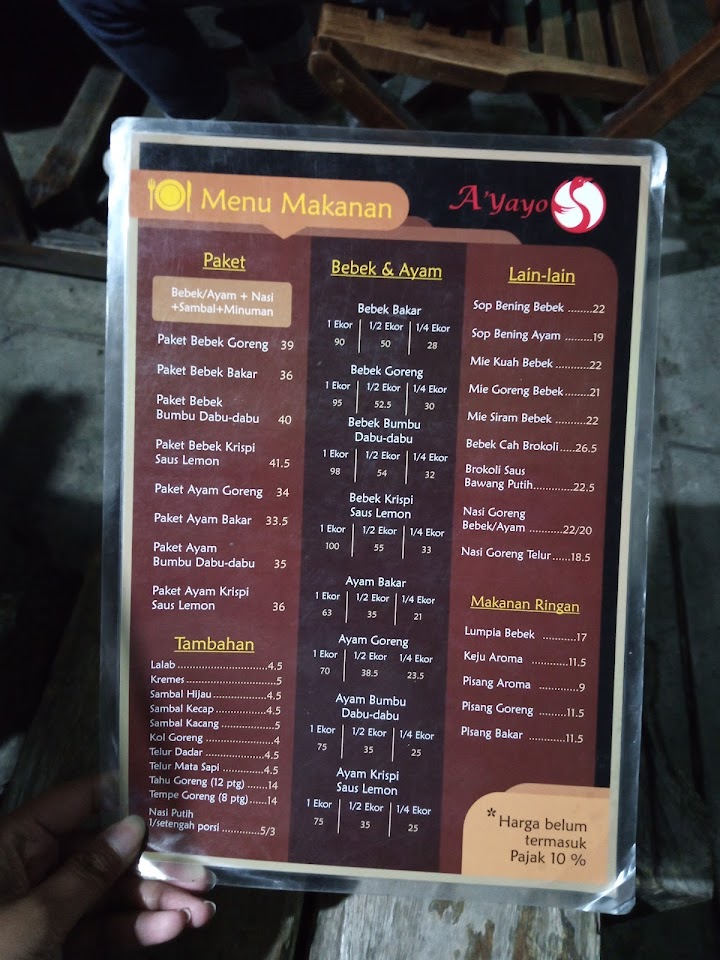 Menu Makanan
A'Yayo
Paket
Bebek/Ayam + Nasi
+Sambal+Minuman
Paket Bebek Goreng 39
Paket Bebek Bakar 36
Paket Bebek
Bumbu Dabu-dabu 40
Paket Bebek Krispi
Saus Lemon 41.5
Paket Ayam Goreng 34
Paket Ayam Bakar 33.5
Paket Ayam
Bumbu Dabu-dabu 35
Paket Ayam Krispi
Saus Lemon 36
Tambahan
Lalab.........................4.5
Kremes.........................5
Sambal Hijau...............4.5
Sambal Kecap..............4.5
Sambal Kacang ............5
Kol Goreng ...................4
Telur Dadar .................4.5
Telur Mata Sapi ...........4.5
Tahu Goreng (12 ptg) ......14
Tempe Goreng (8 ptg).....14
Nasi Putih
1/setengah porsi .............5/3
Bebek & Ayam
Bebek Bakar
1 Ekor 1/2 Ekor 1/4 Ekor
90 50 28
Bebek Goreng
1 Ekor 1/2 Ekor 1/4 Ekor
95 52.5 30
Bebek Bumbu
Dabu-dabu
1 Ekor 1/2 Ekor 1/4 Ekor
98 54 32
Bebek Krispi
Saus Lemon
1 Ekor 1/2 Ekor 1/4 Ekor
100 55 33
Ayam Bakar
1 Ekor 1/2 Ekor 1/4 Ekor
63 35 21
Ayam Goreng
1 Ekor 1/2 Ekor 1/4 Ekor
70 38.5 23.5
Ayam Bumbu
Dabu-dabu
1 Ekor 1/2 Ekor 1/4 Ekor
75 35 25
Ayam Krispi
Saus Lemon
1 Ekor 1/2 Ekor 1/4 Ekor
75 35 25
Lain-lain
Sop Bening Bebek .......22
Sop Bening Ayam .........19
Mie Kuah Bebek ...........22
Mie Goreng Bebek........21
Mie Siram Bebek ..........22
Bebek Cah Brokoli.....26.5
Brokoli Saus
Bawang Putih.............22.5
Nasi Goreng
Bebek/Ayam ...........22/20
Nasi Goreng Telur......18.5
Makanan Ringan
Lumpia Bebek ..........17
Keju Aroma ...........11.5
Pisang Aroma ............9
Pisang Goreng .........11.5
Pisang Bakar ............11.5
*Harga belum
termasuk
Pajak 10 %